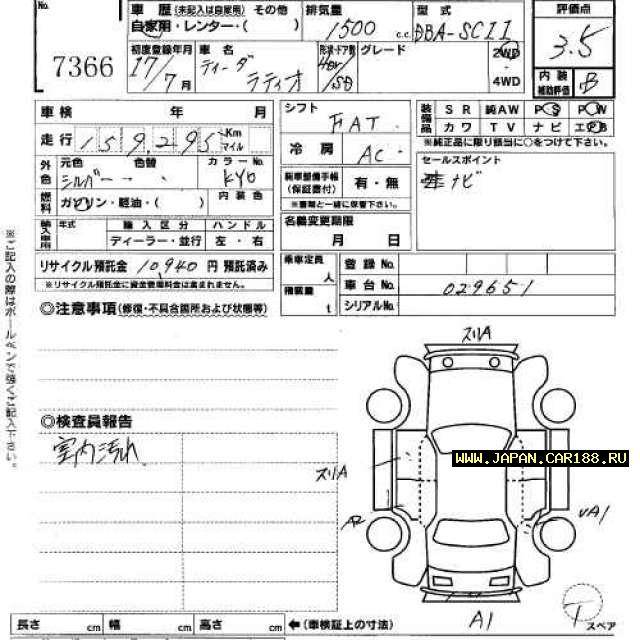 No.
7366
車 歴 (未記入は自家用) その他
自家用・レンター・( )
排気量
1500 c.c.
型 式
DBA-SC11
評価点
3.5
初度登録年月
17/7月
車 名
ティーダ ラティオ
形状・ドア数
4Dr/SD
グレード
2WD
4WD
内装
補助評価
B
車 検 年 月
走行 159,295 Km
マイル
外色
元色
シルバー
色替
カラーNo.
KY0
燃料
ガソリン・軽油・( )
内装色
輸入車用
年式
輸 入 区 分
ディーラー・並行
ハ ン ド ル
左・右
リサイクル預託金 10,940 円 預託済み
※リサイクル預託金に資金管理料金は含まれません。
シフト
FAT
冷 房
AC
新車整備手帳
(保証書付)
有・無
※書類と一緒に保管下さい。
名義変更期限
月 日
乗車定員
人
積載量
t
装備品
S R 純AW P S P W
カ ワ T V ナ ビ エアB
※純正品に限り該当に○をつけて下さい。
セールスポイント
ナビ
登 録 No.
車 台 No.
029651
シリアルNo.
※ご記入の際はボールペンで強くご記入下さい。
◎注意事項(修復・不具合箇所および状態等)
◎検査員報告
室内汚れ
スリA
スリA
A2
UA1
A1
WWW.JAPAN.CAR188.RU
T
スペア
長さ cm 幅 cm 高さ cm ←(車検証上の寸法)